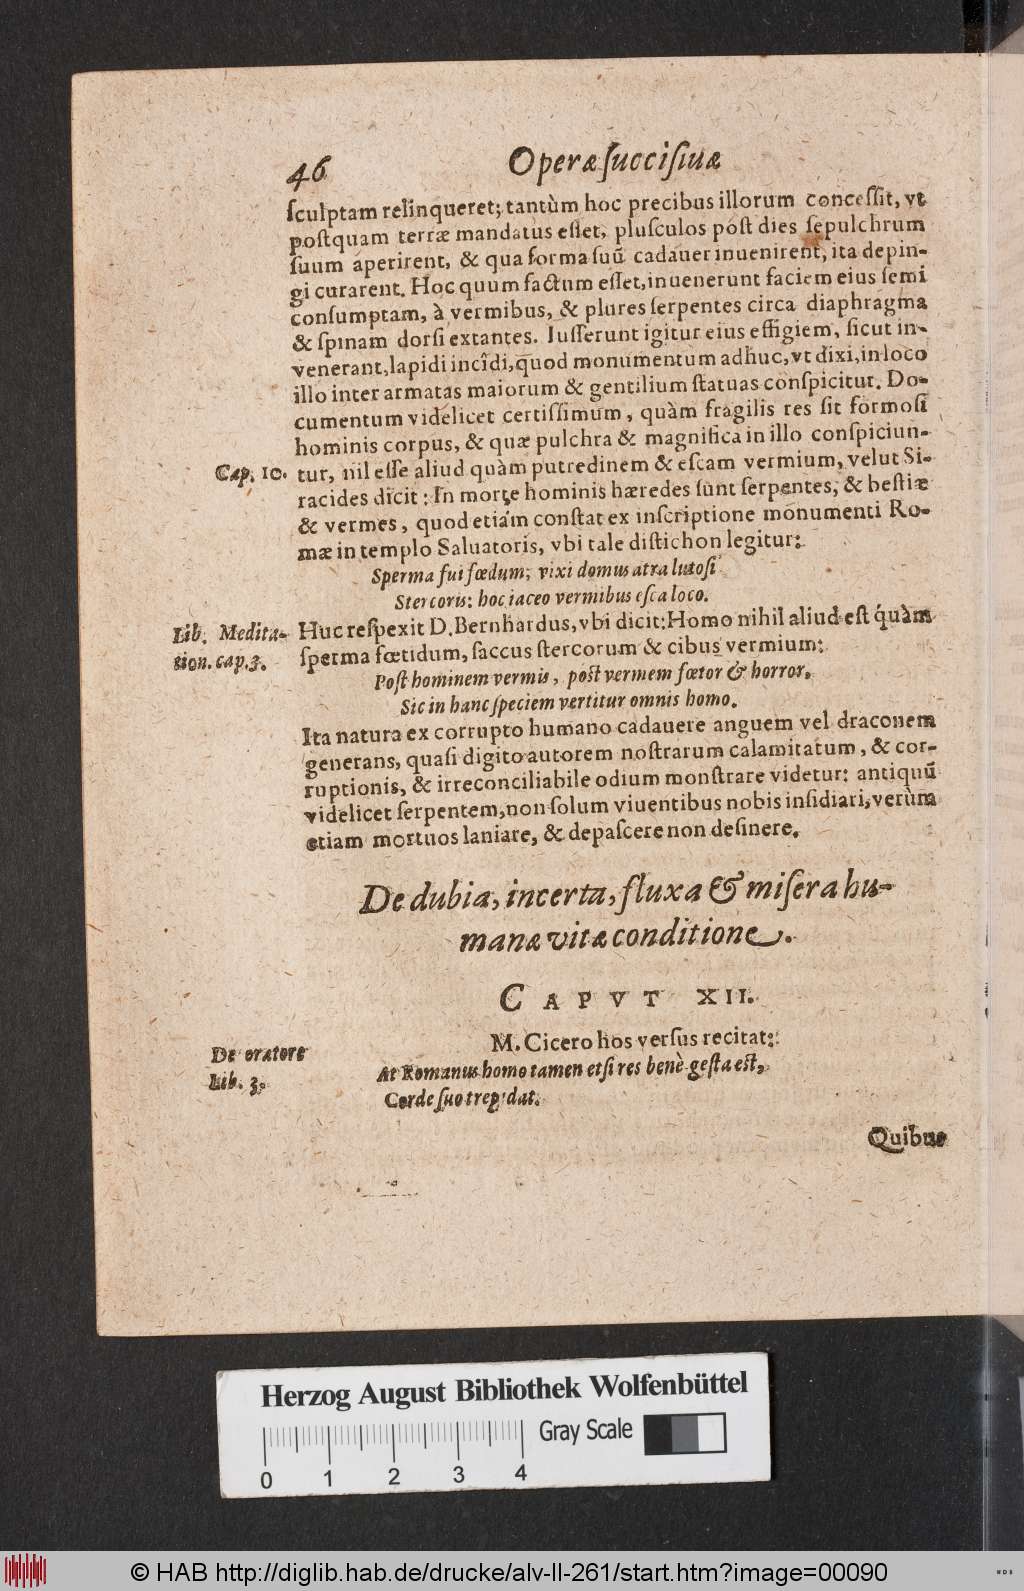 46 Operæ ſucciſiuæ
ſculptam relinqueret; tantùm hoc precibus illorum conceſſit, vt
poſtquam terræ mandatus eſſet, pluſculos pòſt dies ſepulchrum
ſuum aperirent, & qua forma ſuũ cadauer inuenirent, ita depin-
gi curarent. Hoc quum factum eſſet, inuenerunt faciem eius ſemi
conſumptam, à vermibus, & plures ſerpentes circa diaphragma
& ſpinam dorſi extantes. Iuſſerunt igitur eius effigiem, ſicut in-
venerant, lapidi incîdi, quod monumentum adhuc, vt dixi, in loco
illo inter armatas maiorum & gentilium ſtatuas conſpicitur. Do-
cumentum videlicet certiſſimum, quàm fragilis res ſit formoſi
hominis corpus, & quæ pulchra & magnifica in illo conſpiciun-
Cap. 10. tur, nil eſſe aliud quàm putredinem & eſcam vermium, velut Si-
racides dicit: In morte hominis hæredes ſunt ſerpentes, & beſtiæ
& vermes, quod etiam conſtat ex inſcriptione monumenti Ro-
mæ in templo Saluatoris, vbi tale diſtichon legitur:
Sperma fui fœdum, vixi domus atra lutoſi
Stercoris: hoc iaceo vermibus eſca loco.
Lib. Medita- Huc reſpexit D. Bernhardus, vbi dicit: Homo nihil aliud eſt quàm
tion. cap. 3. ſperma fœtidum, ſaccus ſtercorum & cibus vermium:
Poſt hominem vermis, poſt vermem fœtor & horror,
Sic in hanc ſpeciem vertitur omnis homo.
Ita natura ex corrupto humano cadauere anguem vel draconem
generans, quaſi digito autorem noſtrarum calamitatum, & cor-
ruptionis, & irreconciliabile odium monſtrare videtur: antiquũ
videlicet ſerpentem, non ſolum viuentibus nobis inſidiari, verùm
etiam mortuos laniare, & depaſcere non deſinere.
De dubia, incerta, fluxa & miſera hu-
manæ vitæ conditione.
CAPVT XII.
M. Cicero hos verſus recitat:
De oratore At Romanus homo tamen etſi res benè geſta eſt,
Lib. 3. Corde ſuo trepidat.
Quibus
Herzog August Bibliothek Wolfenbüttel
Gray Scale
0 1 2 3 4
© HAB http://diglib.hab.de/drucke/alv-ll-261/start.htm?image=00090